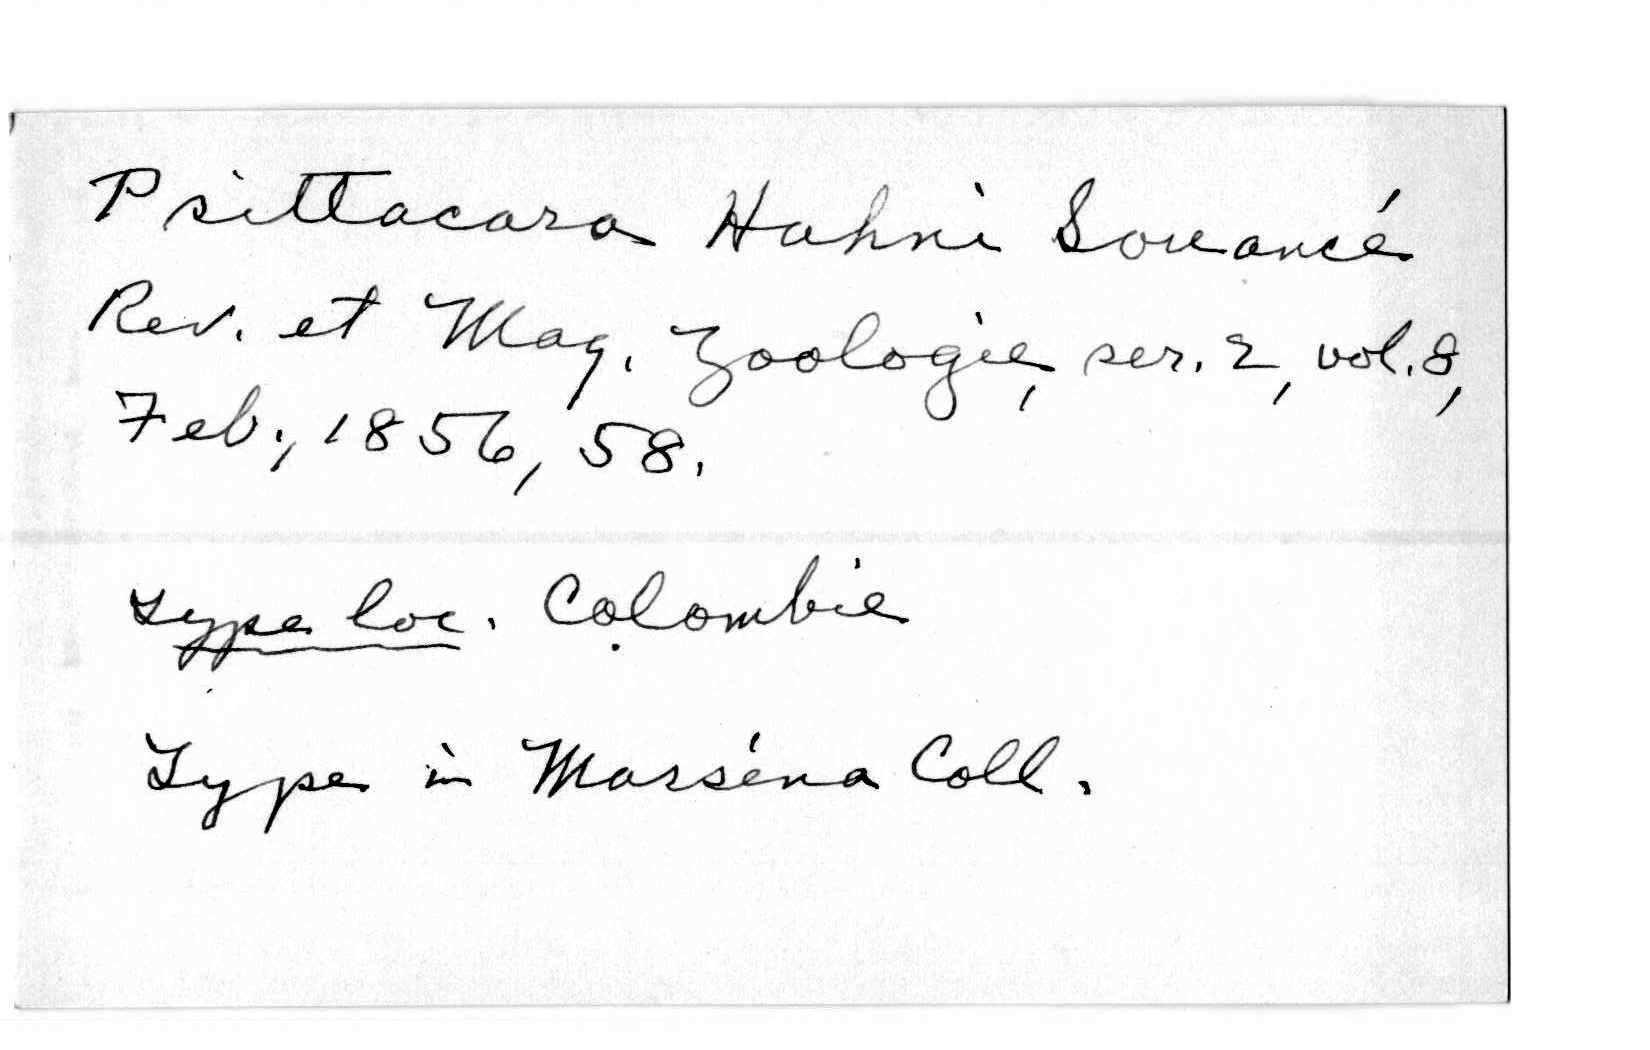 Psittacara Hahni Souancé
Rev. et Mag. Zoologie, ser. 2, vol. 8,
Feb., 1856, 58.
Type loc. Colombie
Type in Masséna Coll.